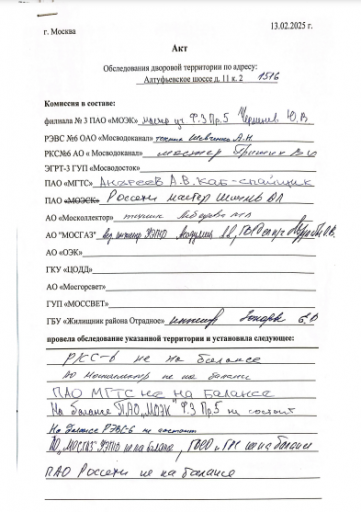 г. Москва 13.02.2025 г.
Акт
Обследования дворовой территории по адресу:
Алтуфьевское шоссе д. 11 к. 2 1516
Комиссия в составе:
филиала № 3 ПАО «МОЭК» мастер уч Ф.3 Пр.5 Ю.В.
РЭВС №6 ОАО «Мосводоканал» техник Шевченко А.Н.
РКС№6 АО « Мосводоканал» мастер
ЭГРТ-3 ГУП «Мосводосток»
ПАО «МГТС» Андреев А.В. Каб-спайщик
ПАО «МОЭСК» Россети мастер
АО «Москоллектор» техник
АО "МОСГАЗ"
АО «ОЭК»
ГКУ «ЦОДД»
АО «Мосгорсвет»
ГУП «МОССВЕТ»
ГБУ «Жилищник района Отрадное» инженер
провела обследование указанной территории и установила следующее:
РКС-6 не на балансе
АО Москоллектор не на балансе
ПАО МГТС не на балансе
На балансе ПАО „МОЭК" Ф.3 Пр.5 не состоит
На балансе РЭВС-6 не состоит
АО „МОСГАЗ" не на балансе
ПАО Россети не на балансе